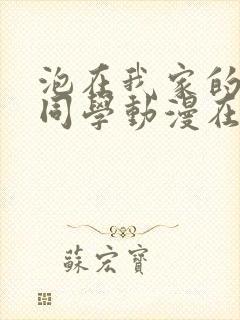 泡在我家的
同學動漫在
蘇宏寶